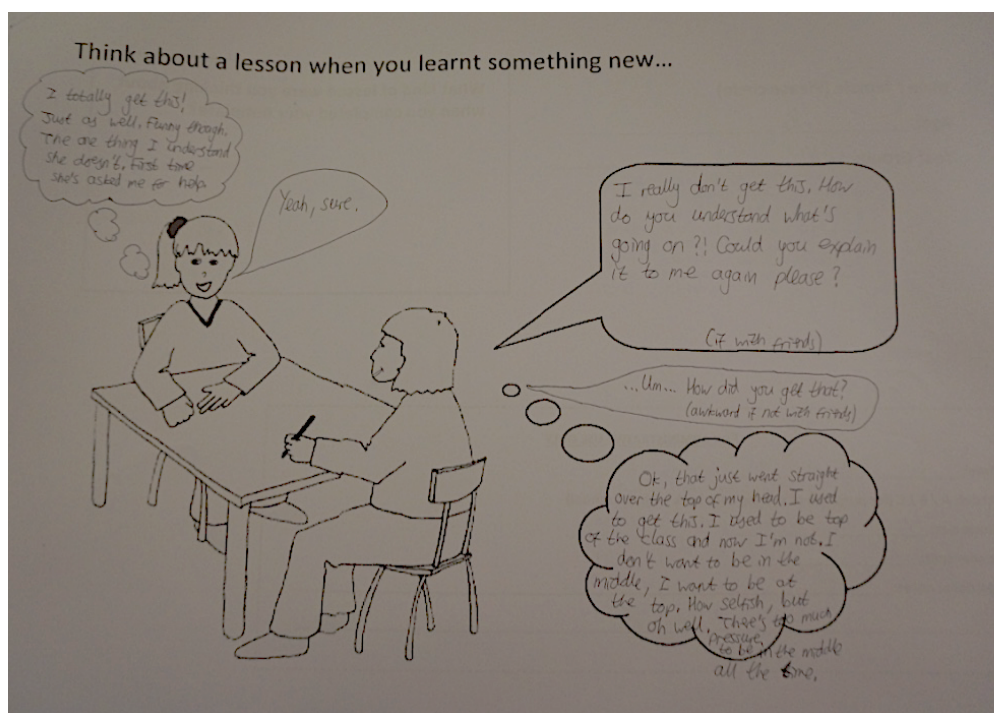 Think about a lesson when you learnt something new...
I totally get this!
Just as well. Funny though.
The one thing I understand
she doesn't. First time
she's asked me for help.
Yeah, sure.
I really don't get this. How
do you understand what's
going on?! Could you explain
it to me again please?
(if with friends)
...Um... How did you get that?
(awkward if not with friends)
Ok, that just went straight
over the top of my head. I used
to get this. I used to be top
of the class and now I'm not. I
don't want to be in the
middle, I want to be at
the top. How selfish, but
oh well. There's too much
pressure
to be in the middle
all the time.